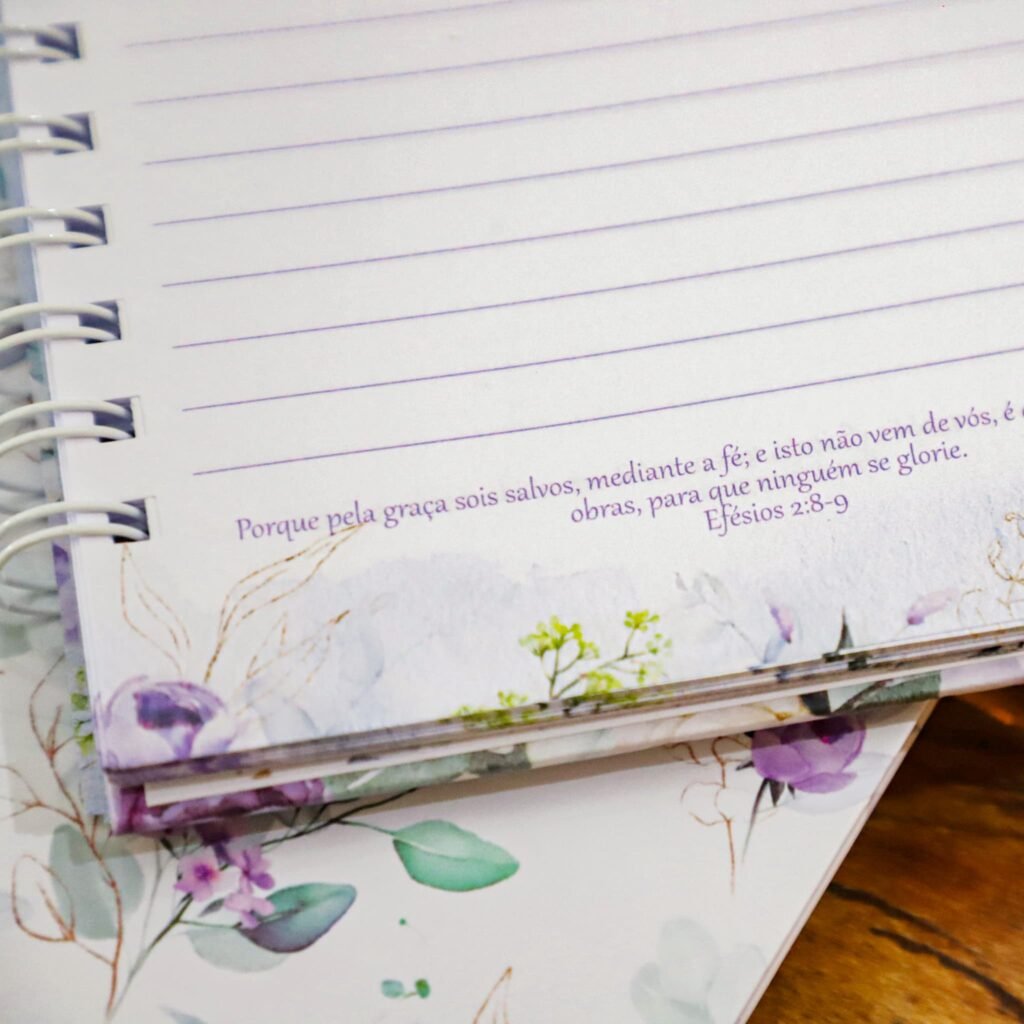 Porque pela graça sois salvos, mediante a fé; e isto não vem de vós, é
obras, para que ninguém se glorie.
Efésios 2:8-9